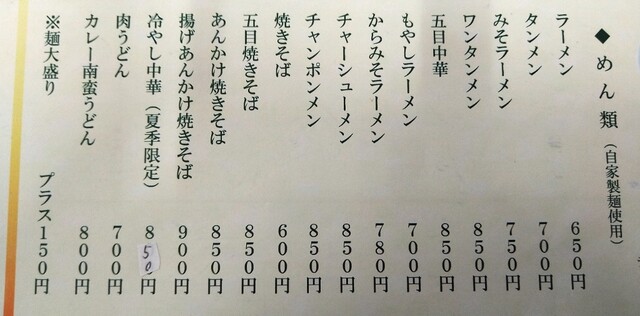 ◆めん類（自家製麺使用）
ラーメン 650円
タンメン 700円
みそラーメン 750円
ワンタンメン 850円
五目中華 850円
もやしラーメン 700円
からみそラーメン 780円
チャーシューメン 850円
チャンポンメン 850円
焼きそば 600円
五目焼きそば 850円
あんかけ焼きそば 850円
揚げあんかけ焼きそば 900円
冷やし中華（夏季限定） 850円
肉うどん 700円
カレー南蛮うどん 800円
※麺大盛り プラス150円